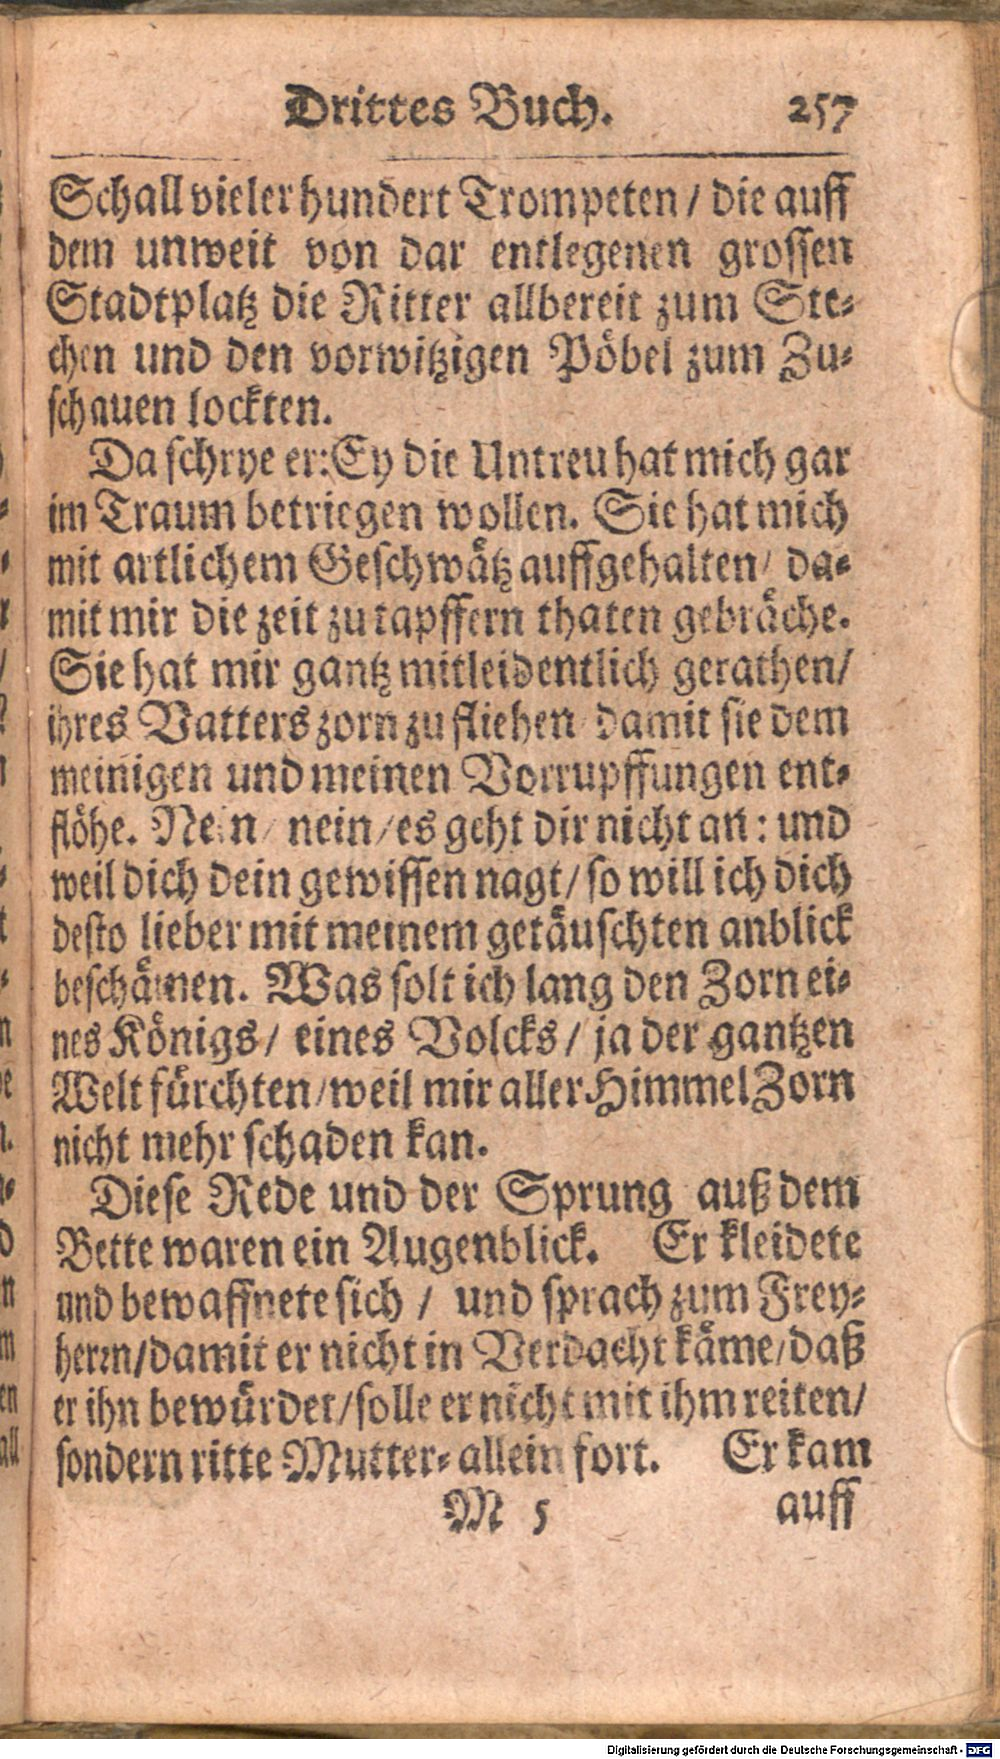 Drittes Buch. 257
Schall vieler hundert Trompeten / die auff
dem unweit von dar entlegenen grossen
Stadtplatz die Ritter allbereit zum Ste-
chen und den vorwitzigen Pöbel zum Zu-
schauen lockten.
Da schrye er: Ey die Untreu hat mich gar
im Traum betriegen wollen. Sie hat mich
mit artlichem Geschwätz auffgehalten / da-
mit mir die zeit zu tapffern thaten gebräche.
Sie hat mir gantz mitleidentlich gerathen /
ihres Vatters zorn zu fliehen / damit sie dem
meinigen und meinen Vorrupffungen ent-
flöhe. Nein / nein / es geht dir nicht an : und
weil dich dein gewissen nagt / so will ich dich
desto lieber mit meinem getäuschten anblick
beschämen. Was solt ich lang den Zorn ei-
nes Königs / eines Volcks / ja der gantzen
Welt fürchten / weil mir aller Himmel Zorn
nicht mehr schaden kan.
Diese Rede und der Sprung auß dem
Bette waren ein Augenblick. Er kleidete
und bewaffnete sich / und sprach zum Frey-
herrn / damit er nicht in Verdacht käme / daß
er ihn bewürdet / solle er nicht mit ihm reiten /
sondern ritte Mutter-allein fort. Er kam
M 5 auff
Digitalisierung gefördert durch die Deutsche Forschungsgemeinschaft - DFG